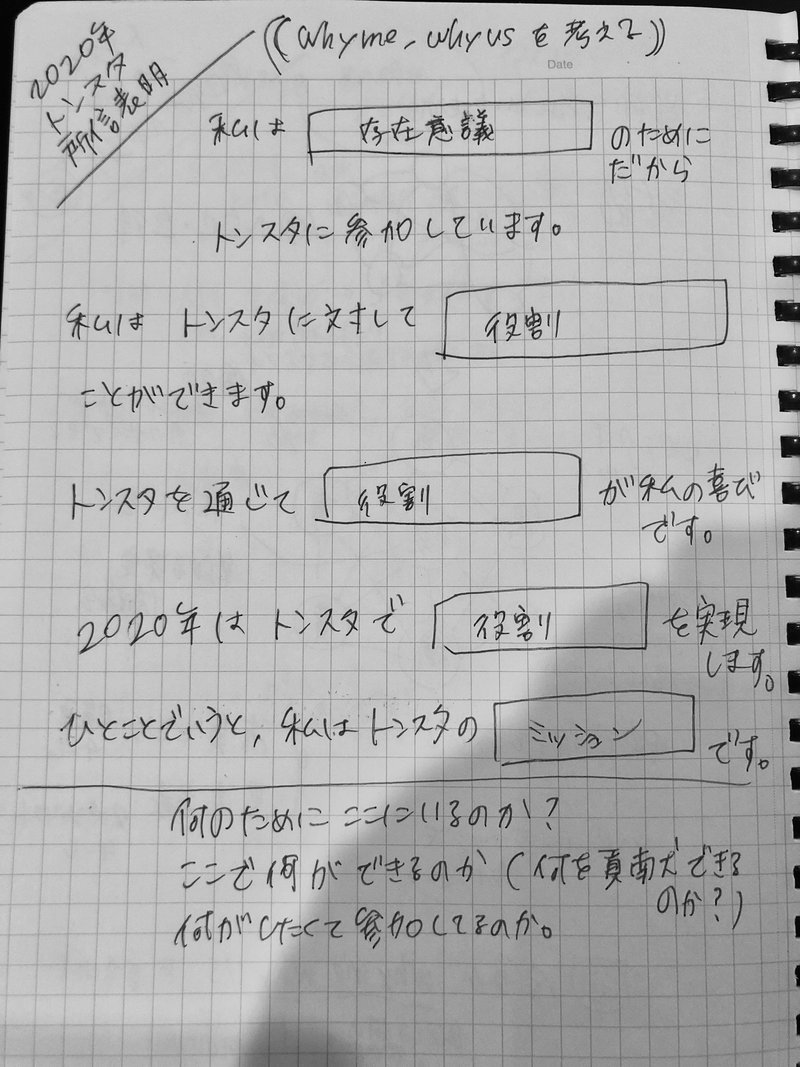 2020年
トンスタ
所信表明
((whyme, whyusを考える))
Date
私は 存在意議 のために
だから
トンスタに参加しています。
私は トンスタに対して 役割
ことができます。
トンスタを通じて 役割 が私の喜び
です。
2020年は トンスタで 役割 を実現
します。
ひとことでいうと, 私はトンスタの ミッション です。
何のために ここにいるのか?
ここで何ができるのか (何を貢献できる
のか?)
何がしたくて参加してるのか。